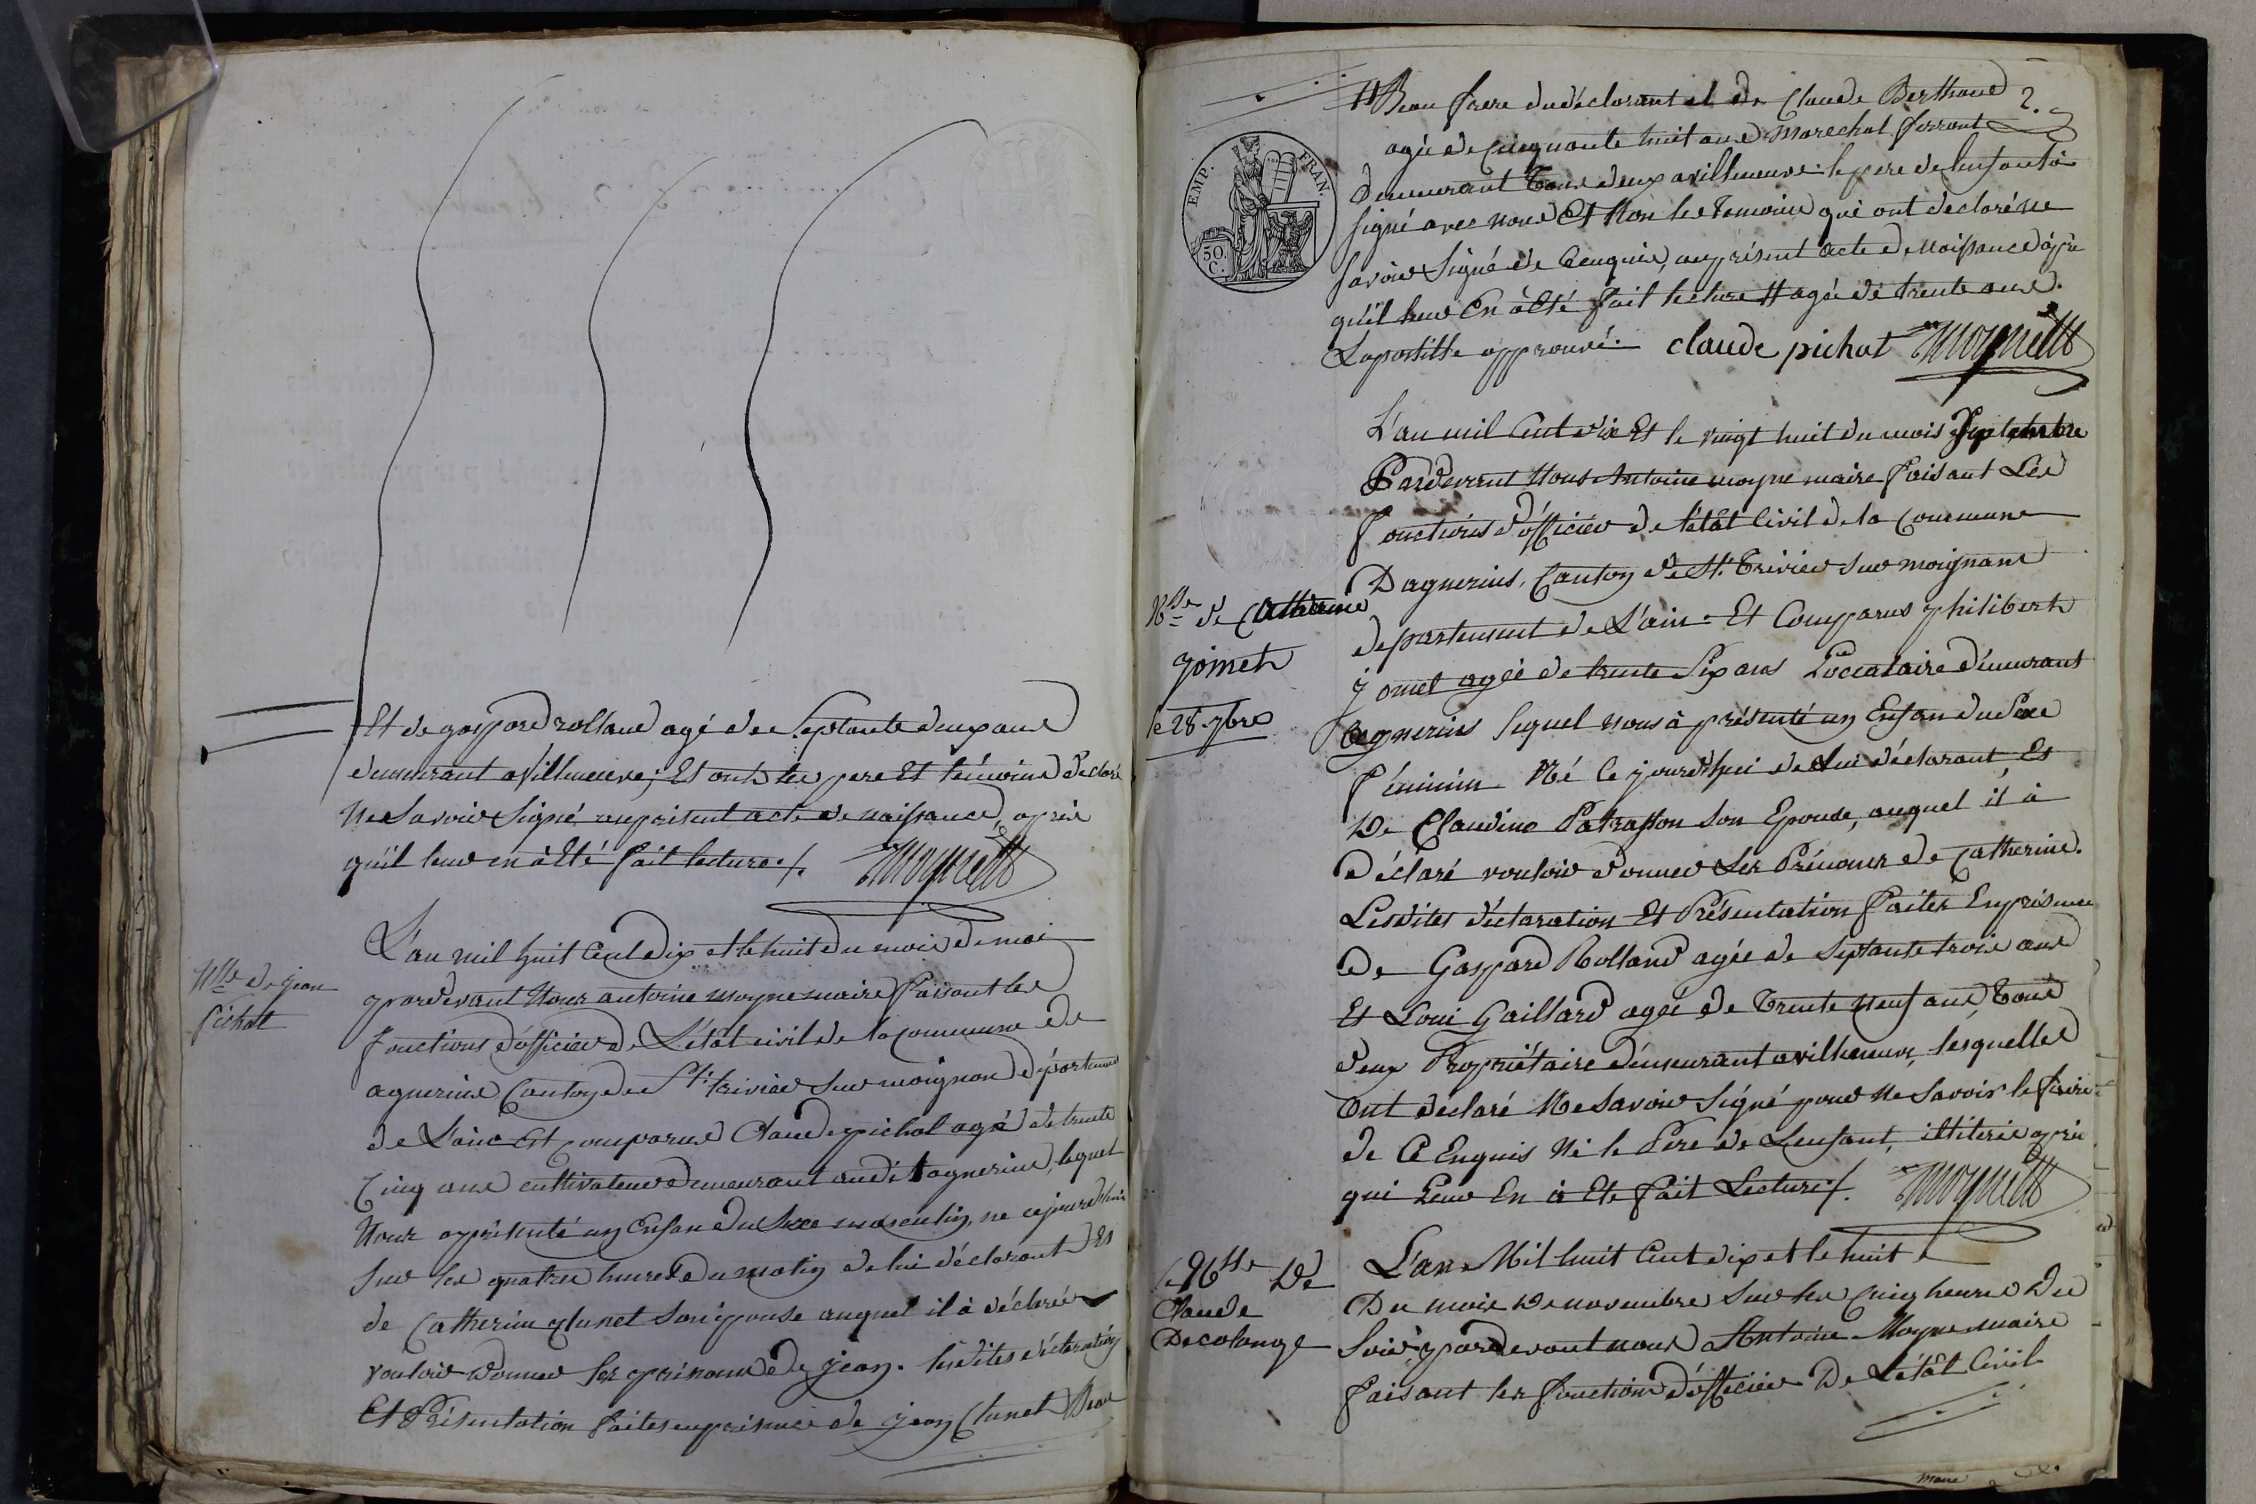 Et de gaspard rolland agé de Septante deux ans
demeurant a Villeneuve; Et ont les pere Et témoins declaré
Ne Savoir Signé au présent acte de naissance, après
qu'il leur en à Eté fait lecture ./. Moyne
Nce de jean
pichat
L'an mil huit Cent dix et le huit du mois de mai
pardevant Nous antoine moyne maire faisant les
fonctions d'officier de L'état civil de la commune de
agnerins Canton de St. trivier sur moignan département
de L'ain Est comparus Claude pichat agé de trente
Cinq ans cultivateur demeurant audit agnerins, lequel
Nous a présenté un Enfan du Sexe masculin, né cejourd'hui
sur les quatre heures du matin de lui déclarant Et
de Catherine clunet son épouse auquel il à déclaré
vouloir donner les prénoms de jean. lesdites déclaration
Et Présentation faites en présence de jean Clunet Beau
EMP. FRAN.
50 C.
2.
# Beau frere du déclarant et de Claude Berthaud
agé de Cinquante huit ans Marechal ferrant
demeurant Tous deux a villeneuve le pere de lenfant à
signé avec nous Et Non les Temoins qui ont declaré ne
savoir Signé de Cenquis, au présent acte de Naissance après
qu'il leur En à Eté fait lecture # agé de trente ans.
Lapostille approuvé. claude pichat Moyne
Nce de Catherine
jomet
le 28 7bre
L'an mil Cent dix Et le vingt huit du mois Septembre
Pardevant Nous Antoine moyne maire faisant Les
Fonctions d'officier de l'état Civil de la Commune
Dagnerins, Canton de St. Trivier sur moignans
departement de L'ain. Et Comparus philibert
jomet agée de trente Six ans Locataire démeurant
Agnerins lequel nous à présenté un Enfan du Sexe
féminin Né Ce jourd'hui de Lui déclarant Et
De Claudine Patrasson son Epouse, auquel il à
déclaré vouloir donner Les Prénoms de Catherine.
Lesdites déclaration Et Présentation faites En présence
de Gaspard Rolland agée de Septante trois ans
Et Loui Gaillard agée de Trente Neuf ans, Tous
deux Propriétaire démeurant a villeneuve, lesquelles
Ont déclaré Ne Savoir Signé pour Ne Savoir le faire
de Ce Enquis Ni le Pere de Lenfant, illiteré après
qui Leur En à Eté fait Lecture ./. Moyne
Nce De
Claude
Decolonge
L'an Mil huit Cent dix et le huit
Du mois De novembre Sur les Cinq heures Du
Soir, pardevant nous Antoine Moyne maire
faisant les fonctions d'officier De L'état Civil